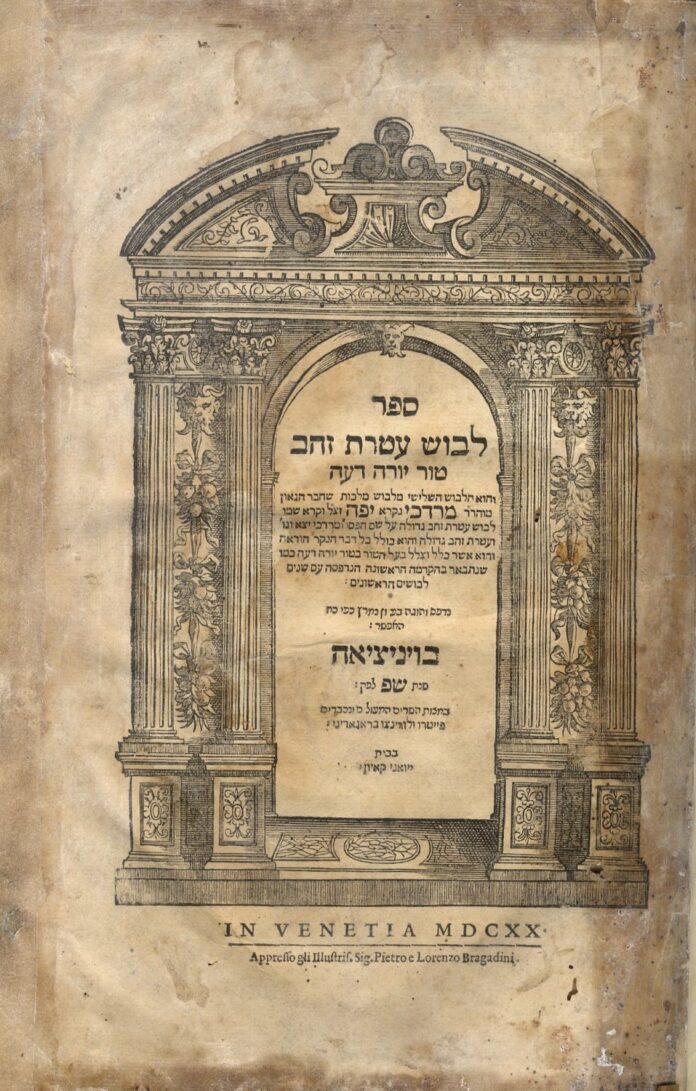 ספר
לבוש עטרת זהב
טור יורה דעה
והוא הלבוש השלישי מלבוש מלכות שחבר הגאון
מוהר״ר מרדכי נקרא יפה זצ״ל וקרא שמו
לבוש עטרת זהב גדולה על שם הפסו׳ ומרדכי יצא וגו׳
ועטרת זהב גדולה והוא כולל כל דבר הנקר׳ הוראה
והוא אשר כלל וצלל בעל הטור בטור יורה דעה כמו
שנתבאר בהקדמה הראשונה הנדפסה עם שנים
לבושים הראשונים :
נדפס והוגה בעיון נמרץ כפי כח
האפשר :
בויניציאה
שנת שפ לפק :
במצות השרים
פייטרו ולורינצו בראגאדיני :
בבית
יואני קאיון :
IN VENETIA MDCXX.
Appresso gli Illustris. Sig. Pietro e Lorenzo Bragadini.